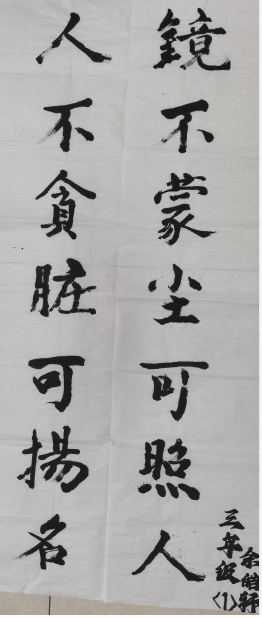 鏡不蒙尘可照人
人不貪脏可揚名
三年级
〈1〉
余皓軒